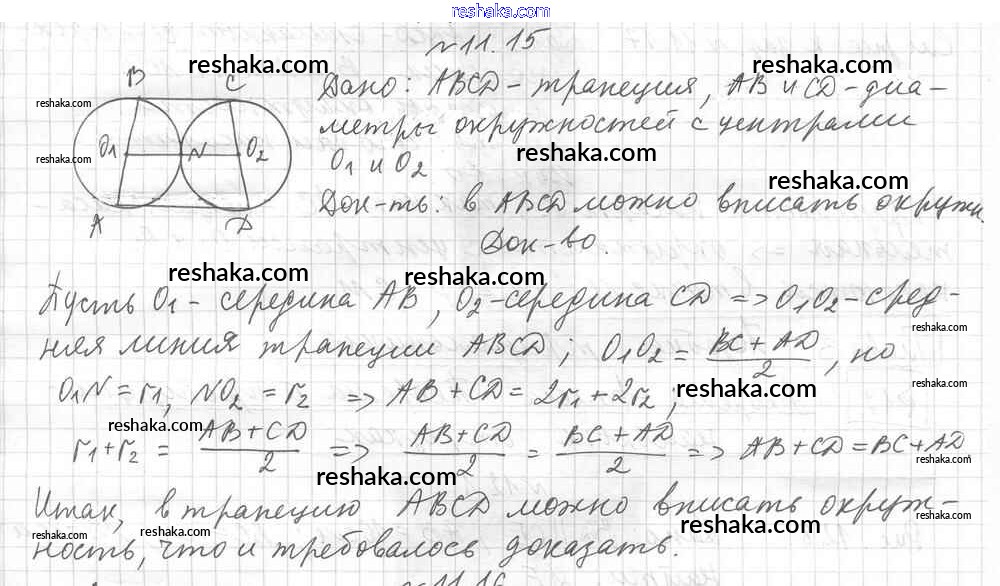 reshaka.com
№11.15
reshaka.com
reshaka.com
B C
Дано: ABCD - трапеция, AB и CD - диа-
reshaka.com
метры окружностей с центрами
O1 N O2
reshaka.com
reshaka.com
O1 и O2
reshaka.com
Док-ть: в ABCD можно вписать окружн.
A D
Док-во.
reshaka.com reshaka.com
Пусть O1 - середина AB, O2 - середина CD => O1O2 - сред-
reshaka.com
няя линия трапеции ABCD; O1O2 = (BC + AD)/2, но
reshaka.com
O1N = r1, NO2 = r2 => AB + CD = 2r1 + 2r2;
reshaka.com
reshaka.com
r1 + r2 = (AB + CD)/2 => (AB + CD)/2 = (BC + AD)/2 => AB + CD = BC + AD
reshaka.com
reshaka.com
Итак, в трапецию ABCD можно вписать окруж-
reshaka.com
reshaka.com reshaka.com reshaka.com
ность, что и требовалось доказать.
№11.16